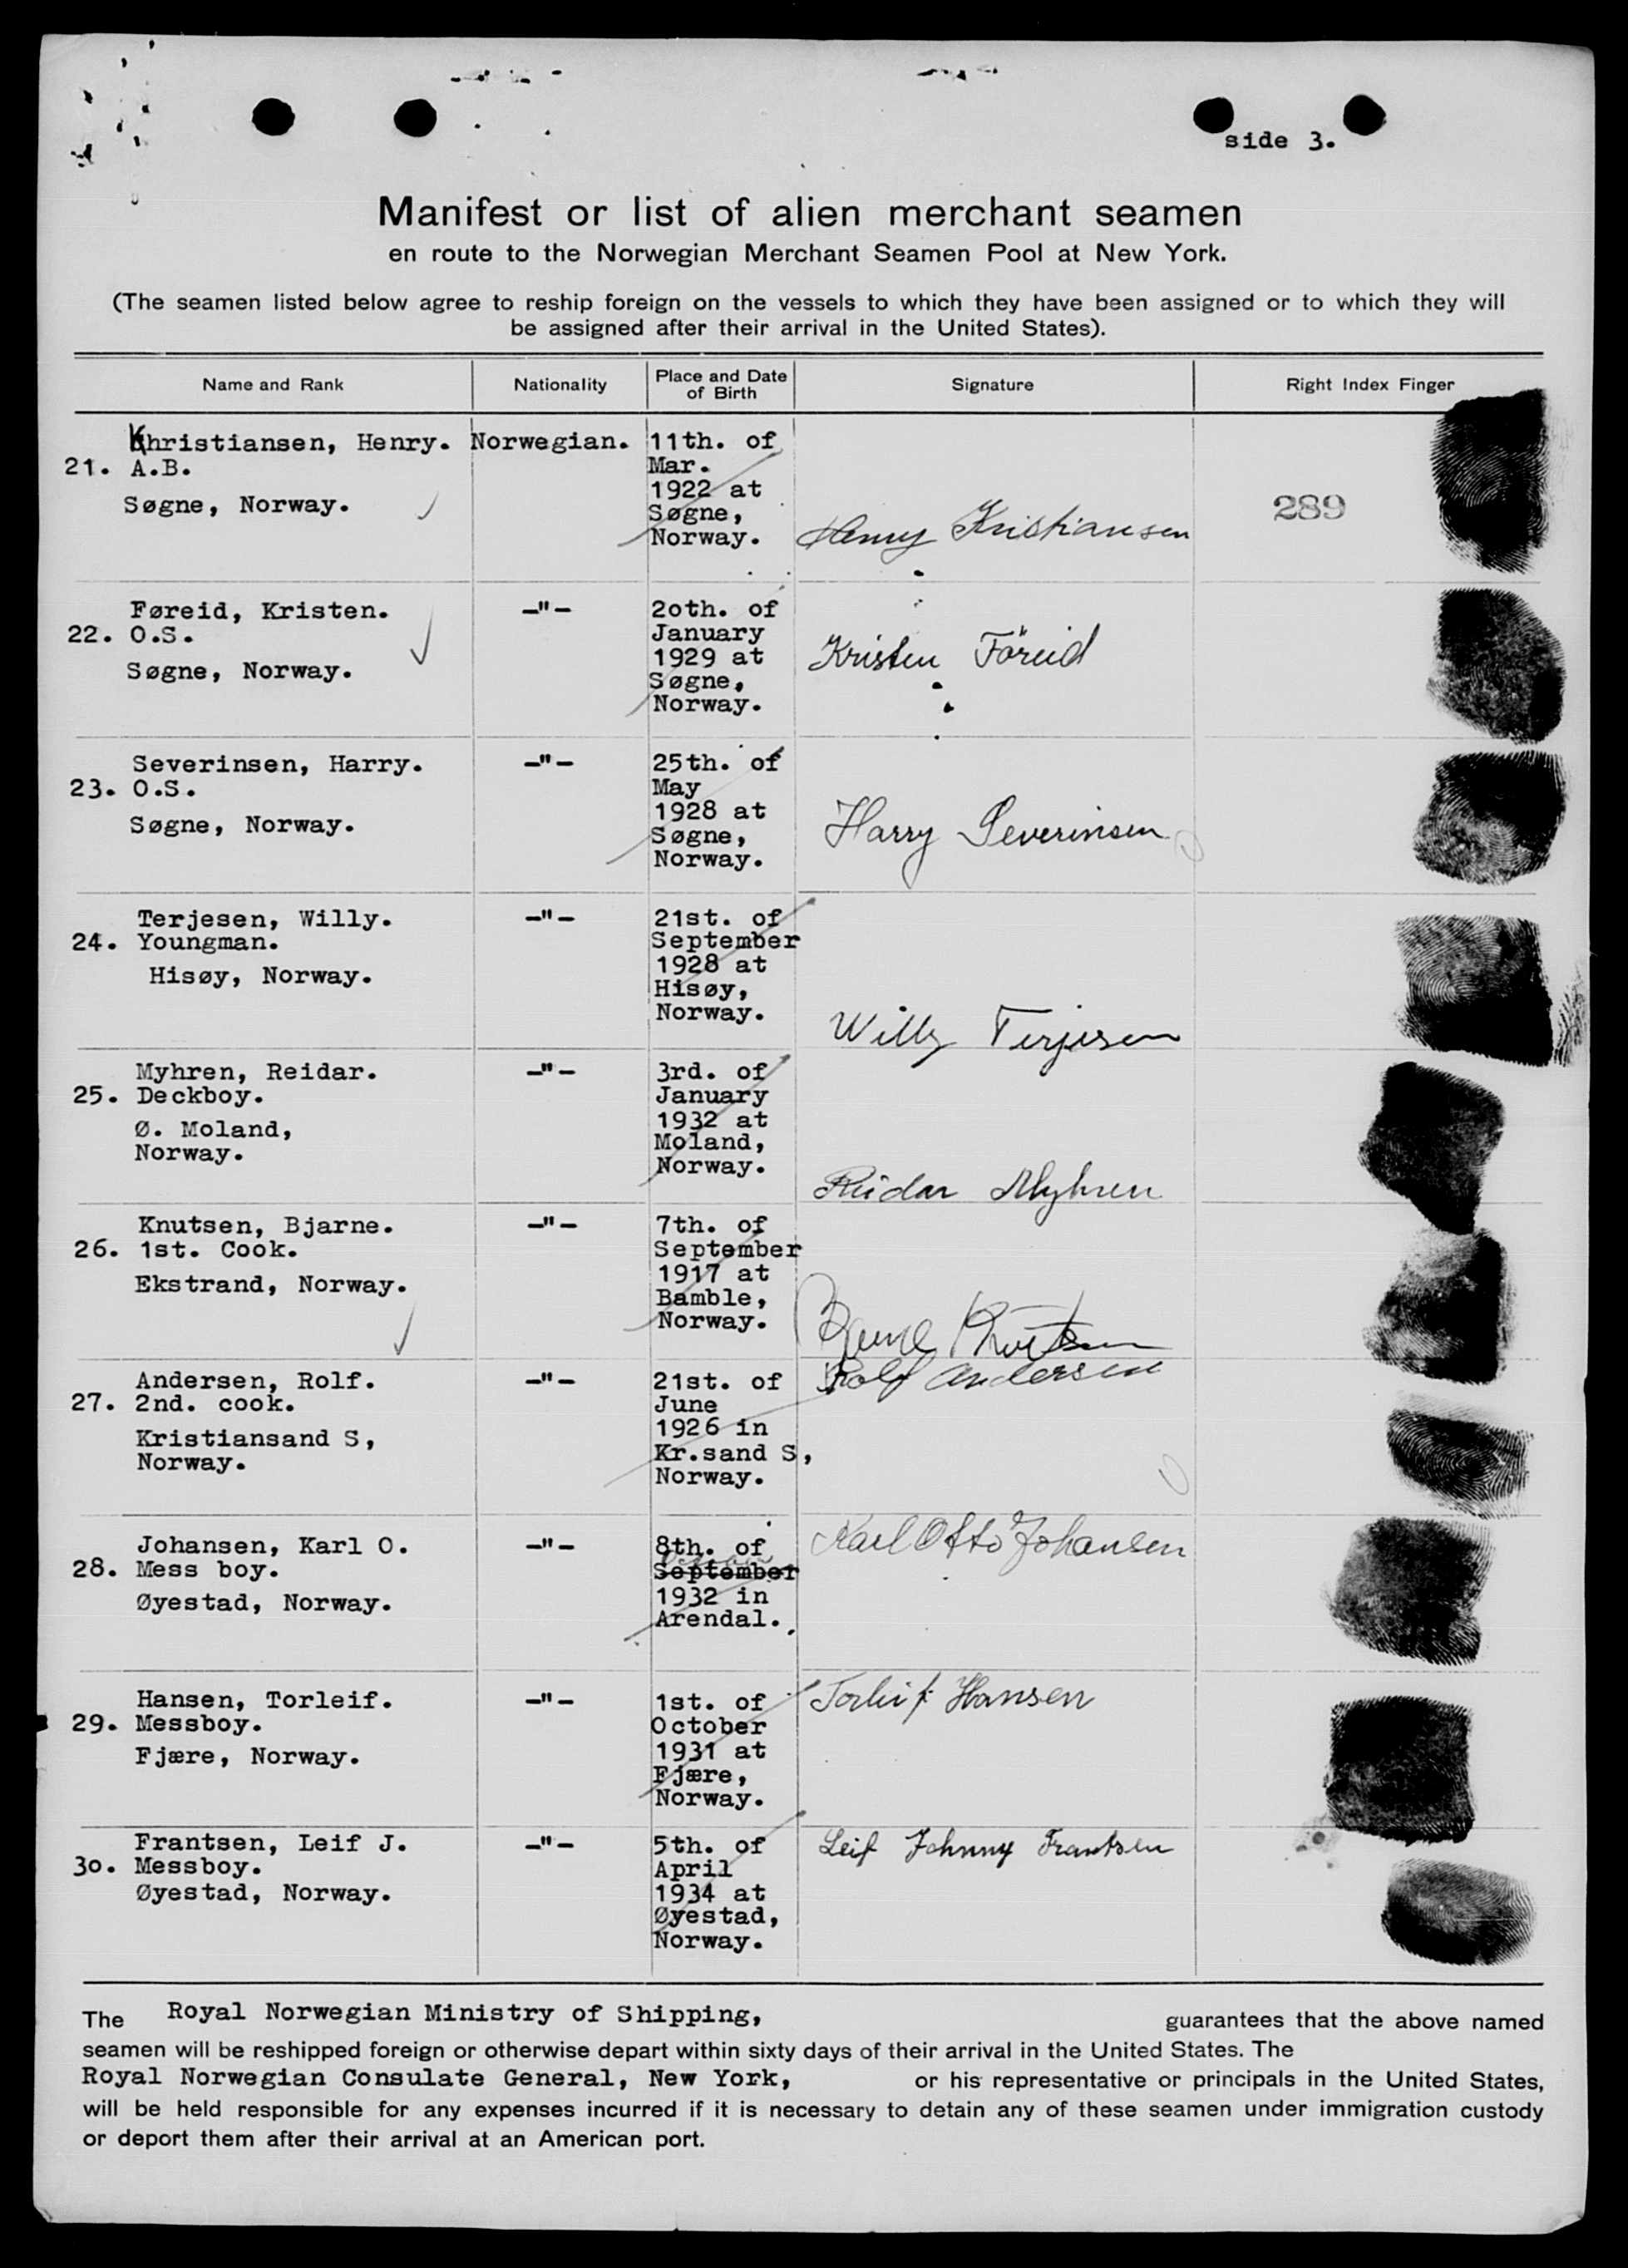 side 3.
Manifest or list of alien merchant seamen
en route to the Norwegian Merchant Seamen Pool at New York.
(The seamen listed below agree to reship foreign on the vessels to which they have been assigned or to which they will
be assigned after their arrival in the United States).
Name and Rank Nationality Place and Date of Birth Signature Right Index Finger
Khristiansen, Henry. Norwegian. 11th. of
21. A.B. Mar.
1922 at
Søgne, Norway. Søgne, 289
Norway. Henry Kristiansen
Føreid, Kristen. —"— 20th. of
22. O.S. January
1929 at Kristen Föreid
Søgne, Norway. Søgne,
Norway.
Severinsen, Harry. —"— 25th. of
23. O.S. May
1928 at
Søgne, Norway. Søgne, Harry Severinsen
Norway.
Terjesen, Willy. —"— 21st. of
24. Youngman. September
1928 at
Hisøy, Norway. Hisøy,
Norway. Willy Terjesen
Myhren, Reidar. —"— 3rd. of
25. Deckboy. January
Ø. Moland, 1932 at
Norway. Moland,
Norway. Reidar Myhren
Knutsen, Bjarne. —"— 7th. of
26. 1st. Cook. September
1917 at
Ekstrand, Norway. Bamble,
Norway. Bjarne Knutsen
Andersen, Rolf. —"— 21st. of Rolf Andersen
27. 2nd. cook. June
1926 in
Kristiansand S, Kr.sand S,
Norway. Norway.
Johansen, Karl O. —"— 8th. of Karl Otto Johansen
October
28. Mess boy. September
Øyestad, Norway. 1932 in
Arendal.
Hansen, Torleif. —"— 1st. of Torleif Hansen
29. Messboy. October
Fjære, Norway. 1931 at
Fjære,
Norway.
Frantsen, Leif J. —"— 5th. of Leif Johnny Frantsen
30. Messboy. April
Øyestad, Norway. 1934 at
Øyestad,
Norway.
The Royal Norwegian Ministry of Shipping, guarantees that the above named
seamen will be reshipped foreign or otherwise depart within sixty days of their arrival in the United States. The
Royal Norwegian Consulate General, New York, or his representative or principals in the United States,
will be held responsible for any expenses incurred if it is necessary to detain any of these seamen under immigration custody
or deport them after their arrival at an American port.